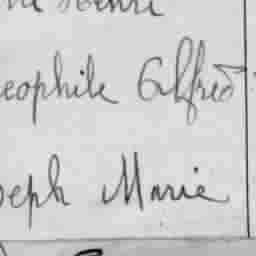 Henri
eophile Alfred
oseph Marie